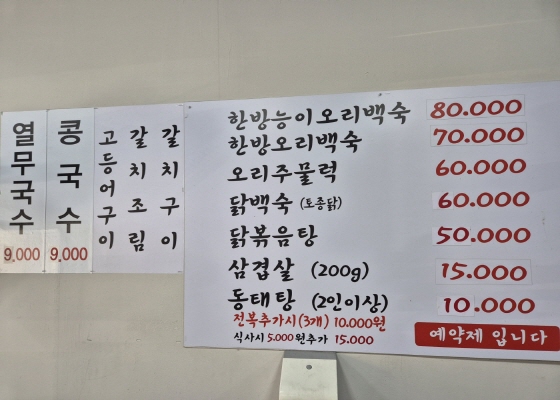 열무국수 9,000
콩국수 9,000
고등어구이
갈치조림
갈치구이
한방능이오리백숙 80.000
한방오리백숙 70.000
오리주물럭 60.000
닭백숙 (토종닭) 60.000
닭볶음탕 50.000
삼겹살 (200g) 15.000
동태탕 (2인이상) 10.000
전복추가시(3개) 10.000원
식사시 5.000원추가 15.000
예약제 입니다